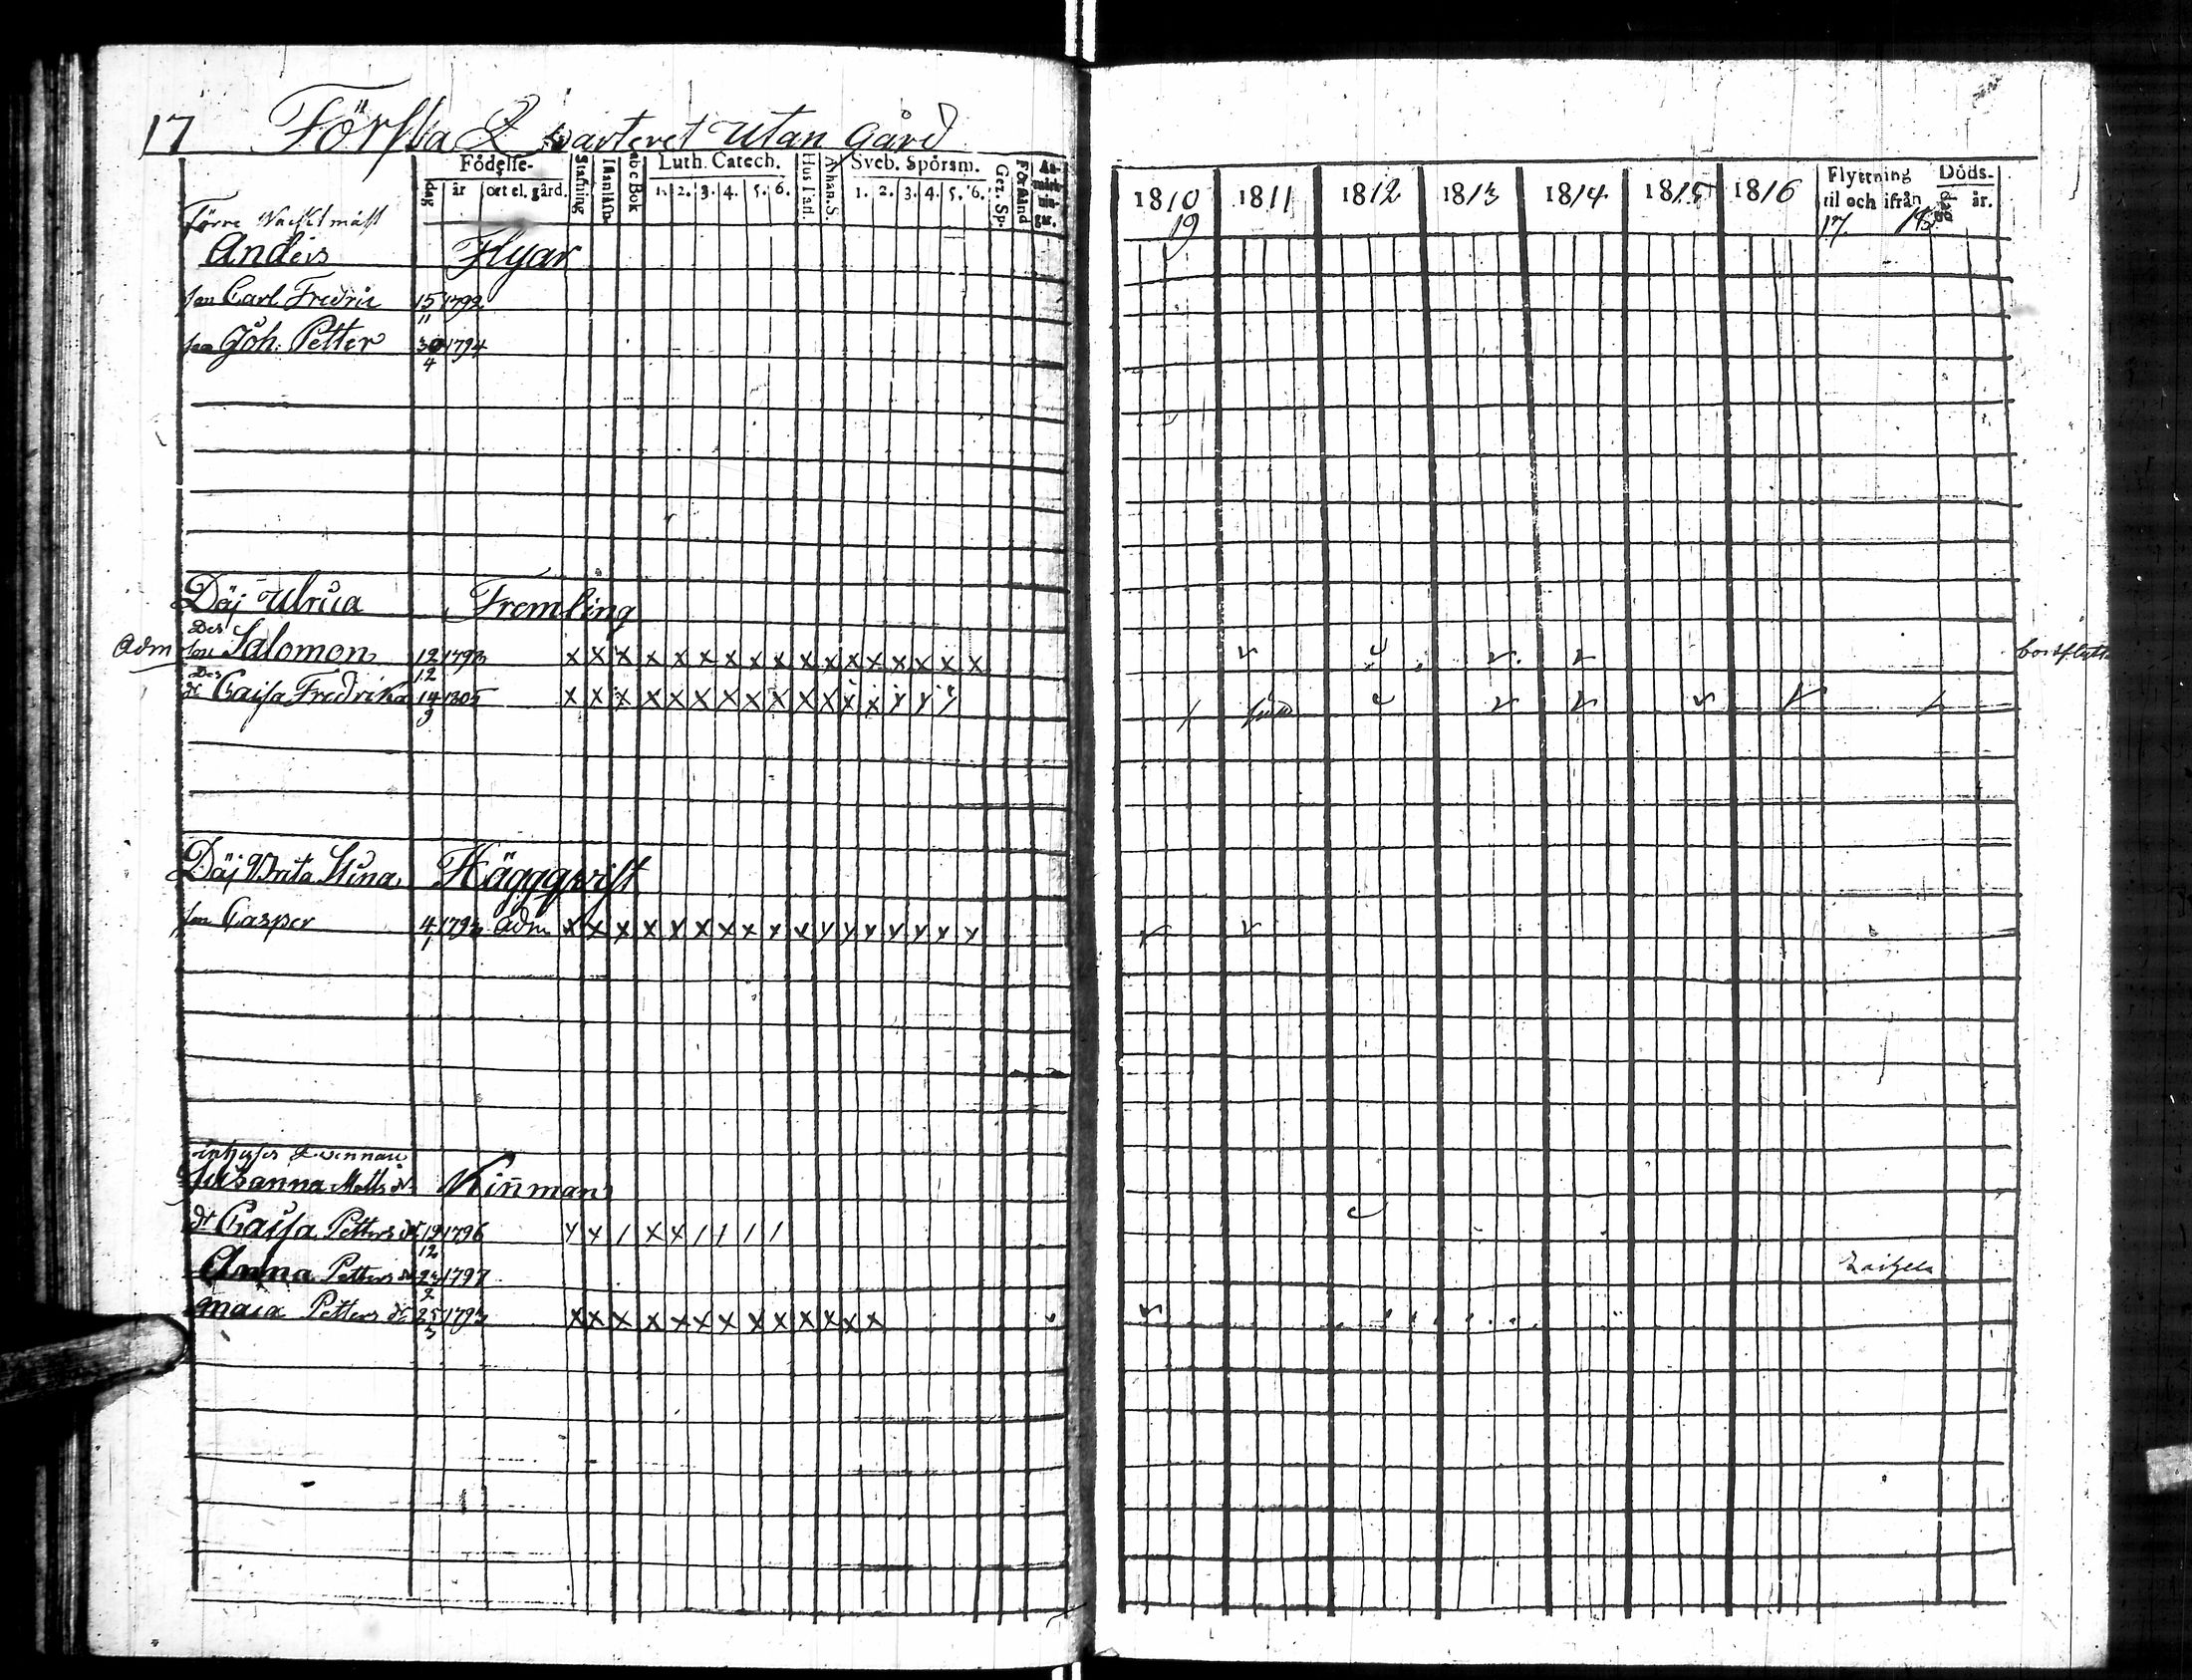 17 Första Qwarteret utan Gård
Födelse-
dag år ort el. gård.
Stafning
Innanläsn.
abc Bok
Luth. Catech.
1. 2. 3. 4. 5. 6.
Hus Tafl.
Athan. S.
Sveb. Spörsm.
1. 2. 3. 4. 5. 6.
Gez. Sp.
Förstånd
An-
märk-
nin-
gar.
Förre
Anders Flyar
son Carl Fredric 15/11 1792
son Joh. Petter 30/4 1794
Däj Ulrica Fremling
Adm Des son Salomon 12/12 1793 x x x x x x x x x x x x x x x x x
Des dr Caisa Fredrika 14/9 1805 x x x x x x x x x x x x x y y y
Däj Brita Stina Häggqvist
son Casper 4/1 1793 Adm x x x x x x x x x x y y y y y y y
inhyses Qvinnan
Susanna Matts dr Kinman
dr Caisa Petters dr 19/12 1796 y y / x x / / / /
Anna Petters dr 23/2 1797
Maia Petters dr 25/3 1793 x x x x x x x x x x x x x
1810 1811 1812 1813 1814 1815 1816
Flyttning
til och ifrån
Döds-
dag år.
19 17 18
bortflytt